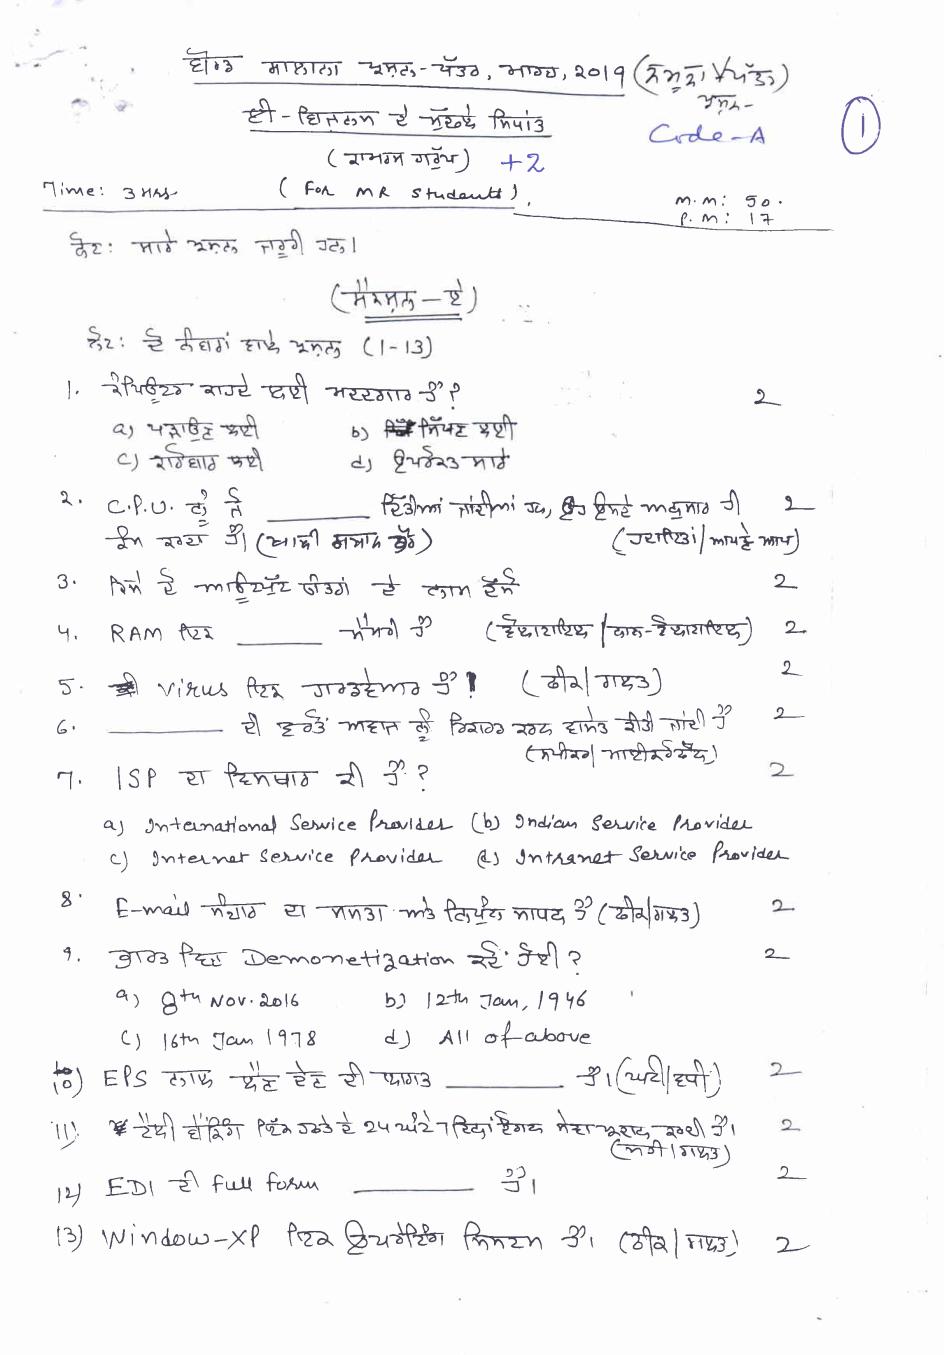 ਬੋਰਡ ਸਾਲਾਨਾ ਪ੍ਰਸ਼ਨ-ਪੱਤਰ, ਮਾਰਚ, 2019 (ਨਮੂਨਾ ਪ੍ਰਸ਼ਨ-ਪੱਤਰ)
ਈ-ਬਿਜ਼ਨਸ ਦੇ ਮੁੱਢਲੇ ਸਿਧਾਂਤ
Code-A
1
(ਕਾਮਰਸ ਗਰੁੱਪ) +2
Time: 3 HRS (For MR Students)
M.M: 50.
P.M: 17
ਨੋਟ: ਸਾਰੇ ਪ੍ਰਸ਼ਨ ਜਰੂਰੀ ਹਨ।
(ਸੈਕਸ਼ਨ-ਏ)
ਨੋਟ: ਦੋ ਨੰਬਰਾਂ ਵਾਲੇ ਪ੍ਰਸ਼ਨ (1-13)
1. ਕੰਪਿਊਟਰ ਕਾਹਦੇ ਲਈ ਮਦਦਗਾਰ ਹੈ? 2
a) ਪੜ੍ਹਾਉਣ ਲਈ b) ਸਿੱਖਣ ਲਈ
c) ਕਾਰੋਬਾਰ ਲਈ d) ਉਪਰੋਕਤ ਸਾਰੇ
2. C.P.U. ਨੂੰ ਜੋ ________ ਦਿੱਤੀਆਂ ਜਾਂਦੀਆਂ ਹਨ, ਉਹ ਉਸਦੇ ਅਨੁਸਾਰ ਹੀ 2
ਕੰਮ ਕਰਦਾ ਹੈ। (ਖਾਲੀ ਸਥਾਨ ਭਰੋ) (ਹਦਾਇਤਾਂ/ਆਪਣੇ ਆਪ)
3. ਕਿਸੇ ਦੋ ਆਊਟਪੁੱਟ ਯੰਤਰਾਂ ਦੇ ਨਾਮ ਦੱਸੋ 2
4. RAM ਇਕ ________ ਮੈਮਰੀ ਹੈ (ਵੋਲਾਟਾਇਲ/ਨਾਨ-ਵੋਲਾਟਾਇਲ) 2
5. ਕੀ Virus ਇਕ ਹਾਰਡਵੇਅਰ ਹੈ? (ਠੀਕ/ਗਲਤ) 2
6. ________ ਦੀ ਵਰਤੋਂ ਅਵਾਜ਼ ਨੂੰ ਰਿਕਾਰਡ ਕਰਨ ਵਾਸਤੇ ਕੀਤੀ ਜਾਂਦੀ ਹੈ 2
(ਸਪੀਕਰ/ਮਾਈਕਰੋਫੋਨ)
7. ISP ਦਾ ਵਿਸਥਾਰ ਕੀ ਹੈ? 2
a) International Service Provider (b) Indian Service Provider
c) Internet Service Provider (d) Intranet Service Provider
8. E-mail ਸੰਚਾਰ ਦਾ ਸਸਤਾ ਅਤੇ ਨਿਪੁੰਨ ਸਾਧਨ ਹੈ (ਠੀਕ/ਗਲਤ) 2
9. ਭਾਰਤ ਵਿਚ Demonetization ਕਦੋਂ ਹੋਈ? 2
a) 8th Nov. 2016 b) 12th Jan, 1946
c) 16th Jan 1978 d) All of above
10) EPS ਨਾਲ ਲੈਣ ਦੇਣ ਦੀ ਲਾਗਤ ________ ਹੈ। (ਘਟੀ/ਵਧੀ) 2
11) ਟੈਲੀ ਬੈਂਕਿੰਗ ਇੱਕ ਹਫਤੇ ਦੇ 24 ਘੰਟੇ 7 ਦਿਨਾਂ ਇਹ ਸੇਵਾ ਪ੍ਰਦਾਨ ਕਰਦੀ ਹੈ। 2
(ਸਹੀ/ਗਲਤ)
12) EDI ਦੀ full form ________ ਹੈ। 2
13) Window-XP ਇਕ ਓਪਰੇਟਿੰਗ ਸਿਸਟਮ ਹੈ। (ਠੀਕ/ਗਲਤ) 2